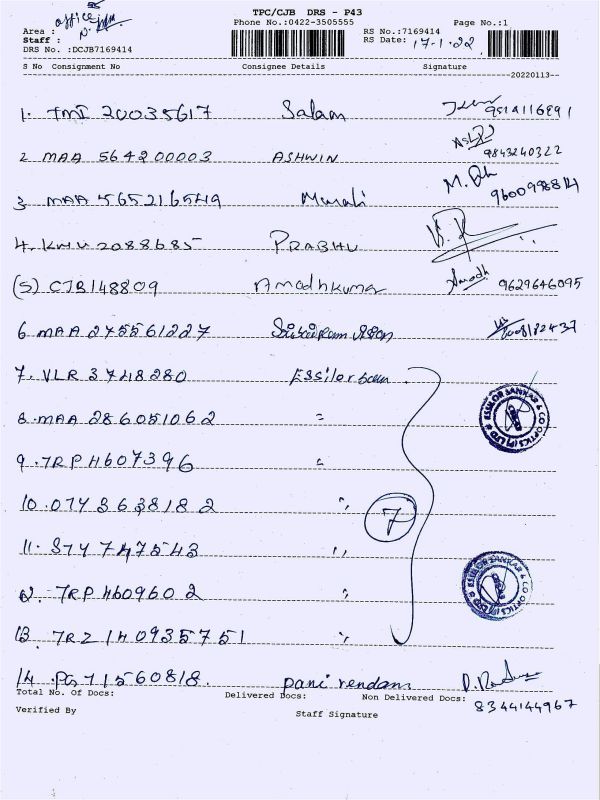 office
TPC/CJB DRS - P43
Area :
Phone No.:0422-3505555
Page No.:1
Staff :
RS No.:7169414
DRS No. :DCJB7169414
RS Date: 17-1-22
S No Consignment No Consignee Details Signature
20220113
1. TMI 20035617 Salam
2 MAA 564200003 ASHWIN 9843240322
3 MAA 565216549 Murali M.
4. KMU 2088685 PRABHU
(5) CJB148809 Amodhkumar Amodh 9629646095
6 MAA 275561227
7. VLR 3748280 Essilor
8. MAA 286051062 "
9. TRP 4607396 "
10. 074 3638182 "
7
11. 574 747543 "
12. TRP 4609602 "
13. TRZ 1409355751 "
ESSILOR SANKAR & CO OPTICS (P) LTD
ESSILOR SANKAR & CO OPTICS (P) LTD
14. PG 71560818. pani
Total No. Of Docs: Delivered Docs: Non Delivered Docs:
8344144967
Verified By Staff Signature